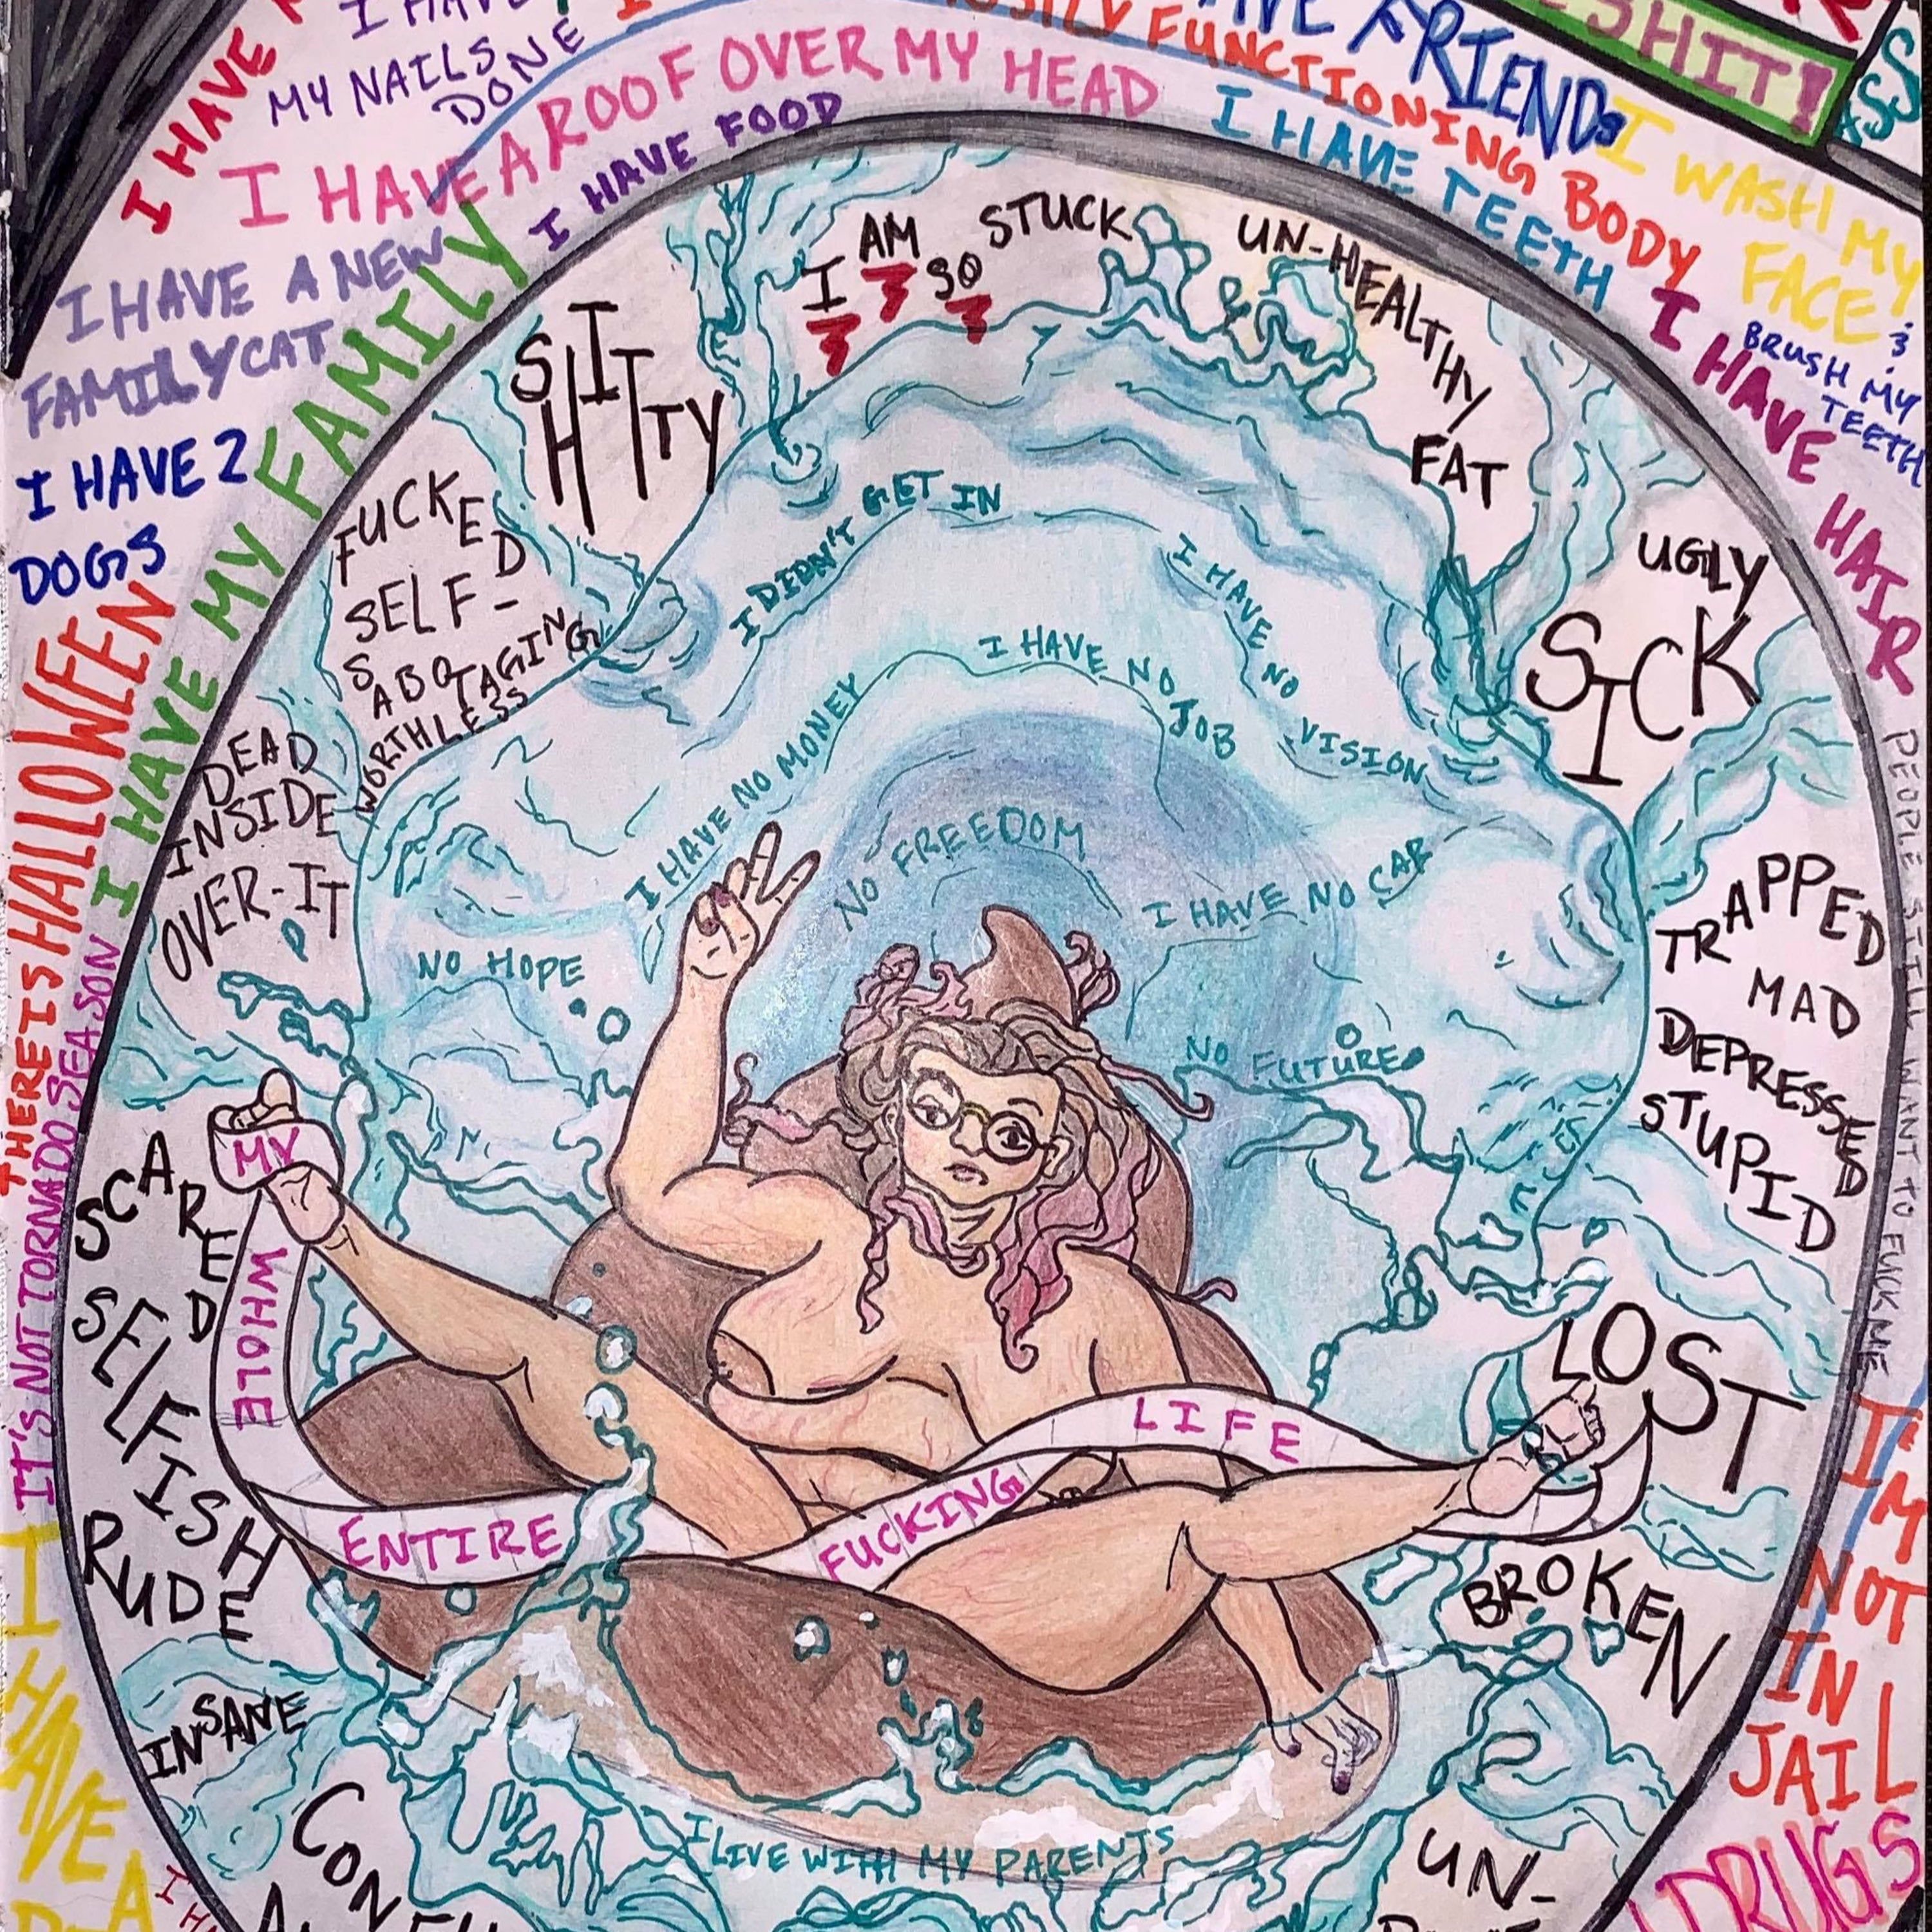 I HAVE
I HAVE
MY NAILS
DONE
MOSTLY FUNCTIONING BODY
FRIENDS
SHIT!
ASS
I HAVE A ROOF OVER MY HEAD
I HAVE FOOD
I HAVE TEETH
I WASH MY
FACE &
BRUSH MY
TEETH
I HAVE HAIR
I HAVE A NEW
FAMILY CAT
I HAVE MY FAMILY
I HAVE 2
DOGS
THERE IS HALLOWEEN
IT'S NOT TORNADO SEASON
PEOPLE STILL WANT TO FUCK ME
I'M
NOT
IN
JAIL
DRUGS
I HAVE A
I AM SO STUCK
UN-HEALTHY
FAT
UGLY
SICK
SHITTY
SHIT
FUCKED
SELF-
SABOTAGING
WORTHLESS
DEAD
INSIDE
OVER-IT
TRAPPED
MAD
DEPRESSED
STUPID
I DIDN'T GET IN
I HAVE NO VISION
I HAVE NO JOB
I HAVE NO MONEY
NO FREEDOM
I HAVE NO CAR
NO HOPE
NO FUTURE
SCARED
SELFISH
RUDE
MY
WHOLE
ENTIRE
FUCKING
LIFE
LOST
BROKEN
INSANE
I LIVE WITH MY PARENTS
UN-